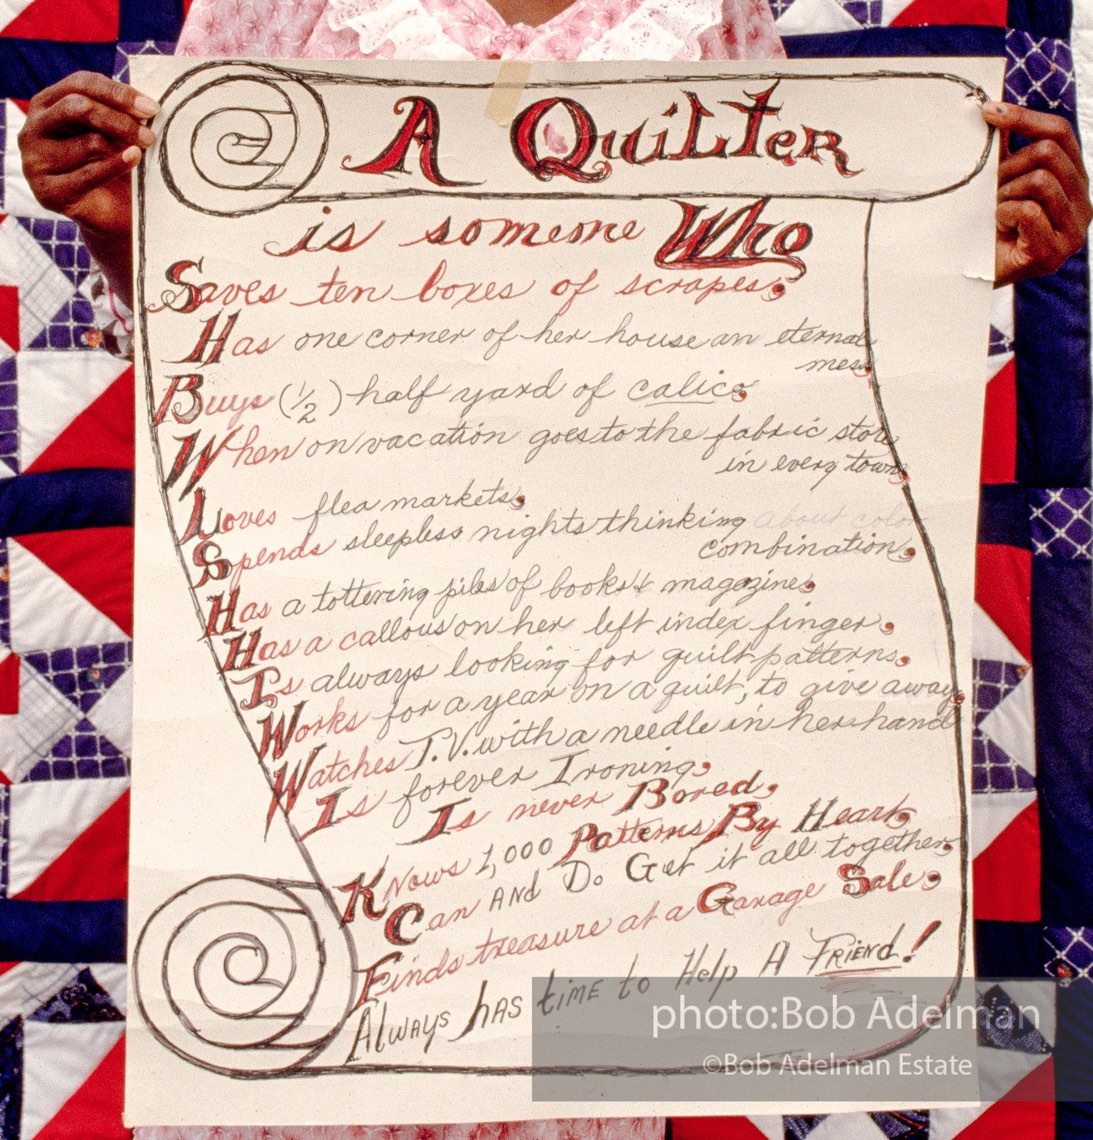 A Quilter
is someone Who
Saves ten boxes of scrapes.
Has one corner of her house an eternal
mess.
Buys (1/2) half yard of calico.
When on vacation goes to the fabric store
in every town.
Loves flea markets.
Spends sleepless nights thinking about color
combination.
Has a tottering piles of books & magazines.
Has a callous on her left index finger.
Is always looking for quilt patterns.
Works for a year on a quilt, to give away.
Watches T.V. with a needle in her hand
Is forever Ironing.
Is never Bored.
Knows 1,000 Patterns By Heart.
Can AND Do Get it all together.
Finds treasure at a Garage Sale.
Always has time to Help A Friend!
photo:Bob Adelman
©Bob Adelman Estate